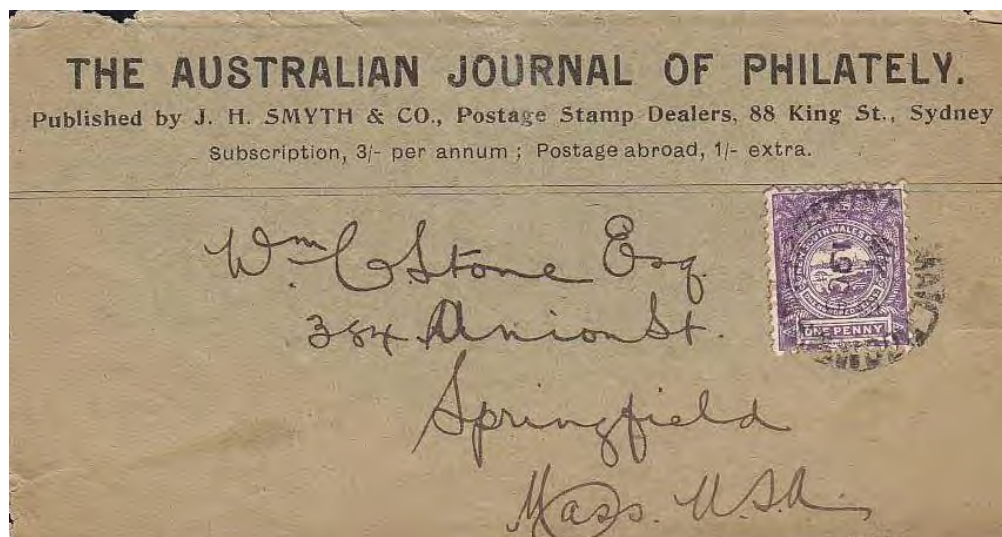 THE AUSTRALIAN JOURNAL OF PHILATELY.
Published by J. H. SMYTH & CO., Postage Stamp Dealers, 88 King St., Sydney
Subscription, 3/- per annum ; Postage abroad, 1/- extra.
Wm C. Stone Esq.
384 Union St.
Springfield
Mass. U.S.A.
ONE PENNY